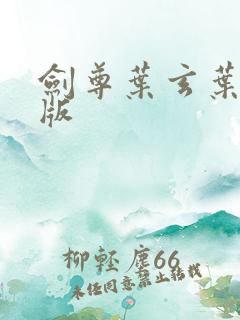 劍尊葉玄葉
版
柳輕塵66
未經同意禁止轉載